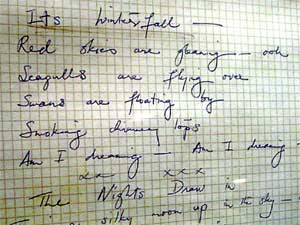 Its Winterfall —
Red skies are gleaming — ooh
Seagulls are flying over
Swans are floating by
Smoking chimney tops
Am I dreaming — Am I dreaming -
xx xxx
The Nights Draw in
silky moon up in the sky —